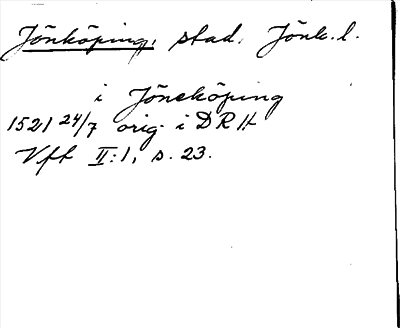 Jönköping, stad. Jönk.l.
i Jöneköping
1521 24/7 orig. i DRH
Vft II:1, s. 23.